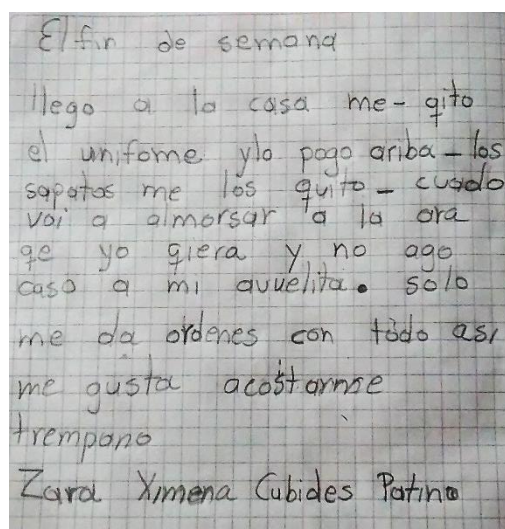 El fin de semana
llego a la casa me - qito
el unifome ylo pogo ariba - los
sapatos me los quito - cuado
voi a almorsar a la ora
qe yo qiera y no ago
caso a mi avuelita. solo
me da ordenes con todo asi
me gusta acostarmse
trempano
Zara Ximena Cubides Patino